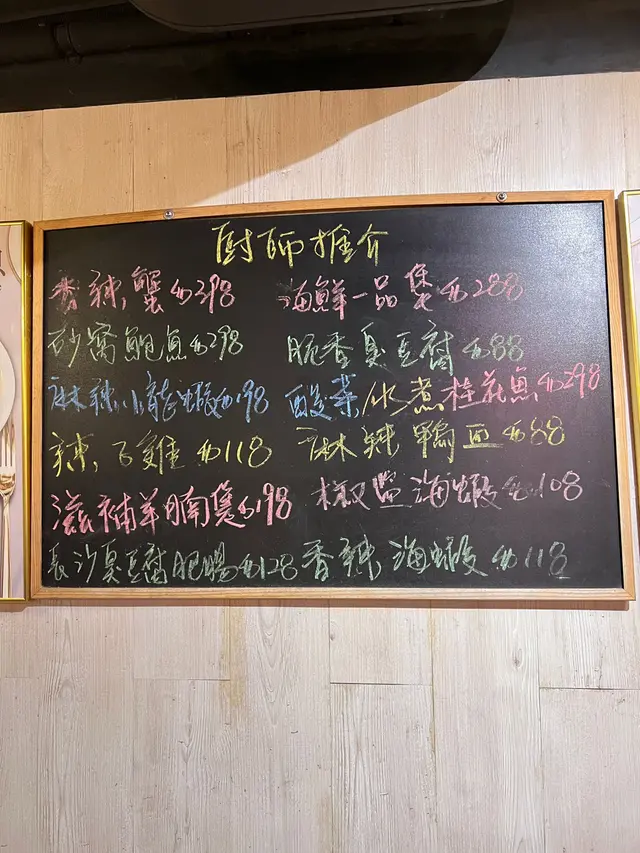 厨师推介
香辣蟹$398 海鮮一品煲$288
砂窩鮑魚$298 脆香臭豆腐$88
麻辣小龍蝦$198 酸菜/水煮桂花魚$298
辣子雞$118 麻辣鴨血$88
滋補羊腩煲$198 椒盐海蝦$108
長沙臭豆腐肥腸$128 香辣海蝦$118